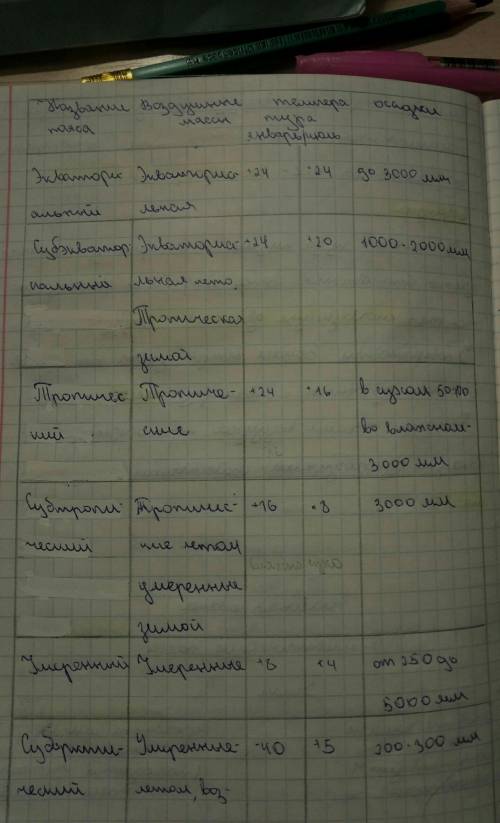 Название Воздушные темпера осадки
пояса массы тура
январь июль
Экватори Экваториа- +24 +24 до 3000 мм
альный льная
Субэкватор Экваториа- +24 +20 1000-2000мм
иальный льная лето
Тропическая
зимой
Тропичес Тропиче- +24 +16 в сухом 50-100
кий ские во влажном-
3000 мм
Субтропи- Тропичес- +16 +8 3000 мм
ческий кие летом
умеренные
зимой
Умеренный Умеренные +8 +4 от 250 до
5000 мм
Субаркти- Умеренные- -40 +5 200-300 мм
ческий летом, воз-